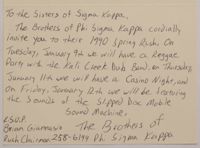 To the Sisters of Sigma Kappa,
The Brothers of Phi Sigma Kappa cordially
invite you to their 1990 Spring Rush. On
Tuesday, January 9th we will have a Reggae
Party with the Kali Creek Dub Band, on Thursday,
January 11th we will have a Casino Night, and
on Friday, January 12th we will be featuring
the Sounds of the Slipped Disc Mobile
Sound Machine.
R.S.V.P.
Brian
Rush Chairman 258-6194
The Brothers of
Phi Sigma Kappa